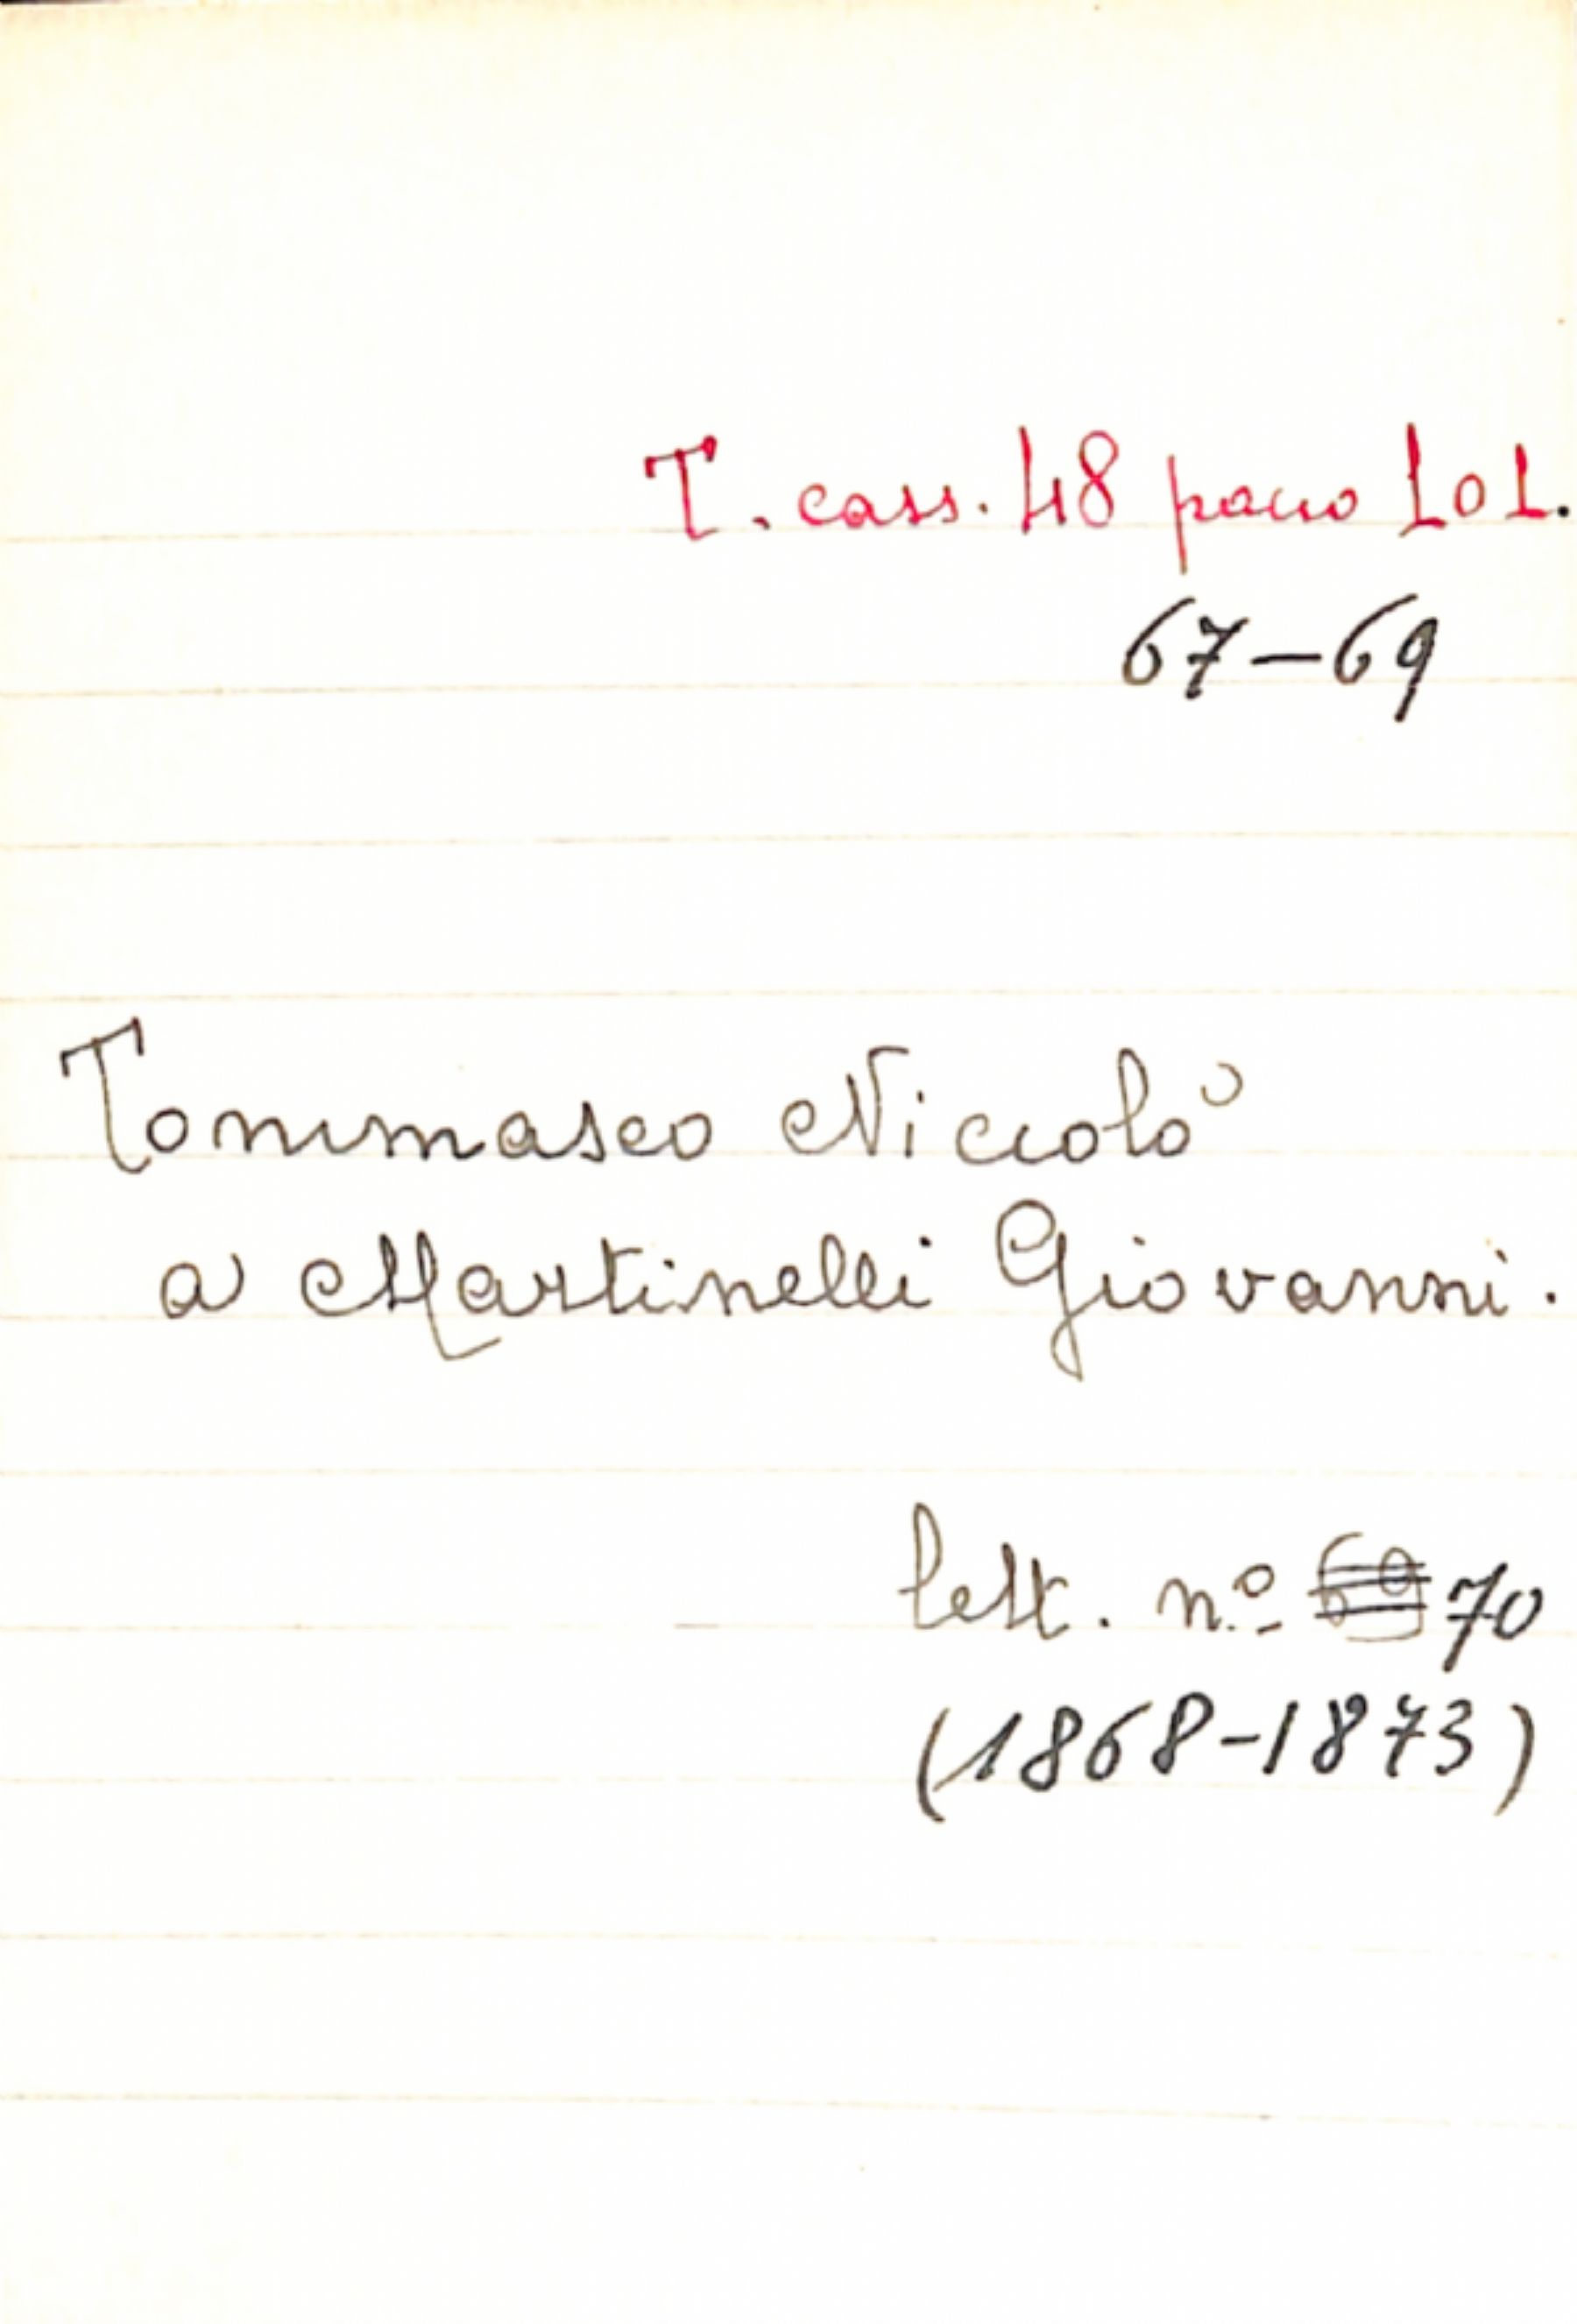 T. cass. 48 pacco 101.
67-69
Tommaseo Niccolò
a Martinelli Giovanni.
lett. n.º 69 70
(1868-1873)